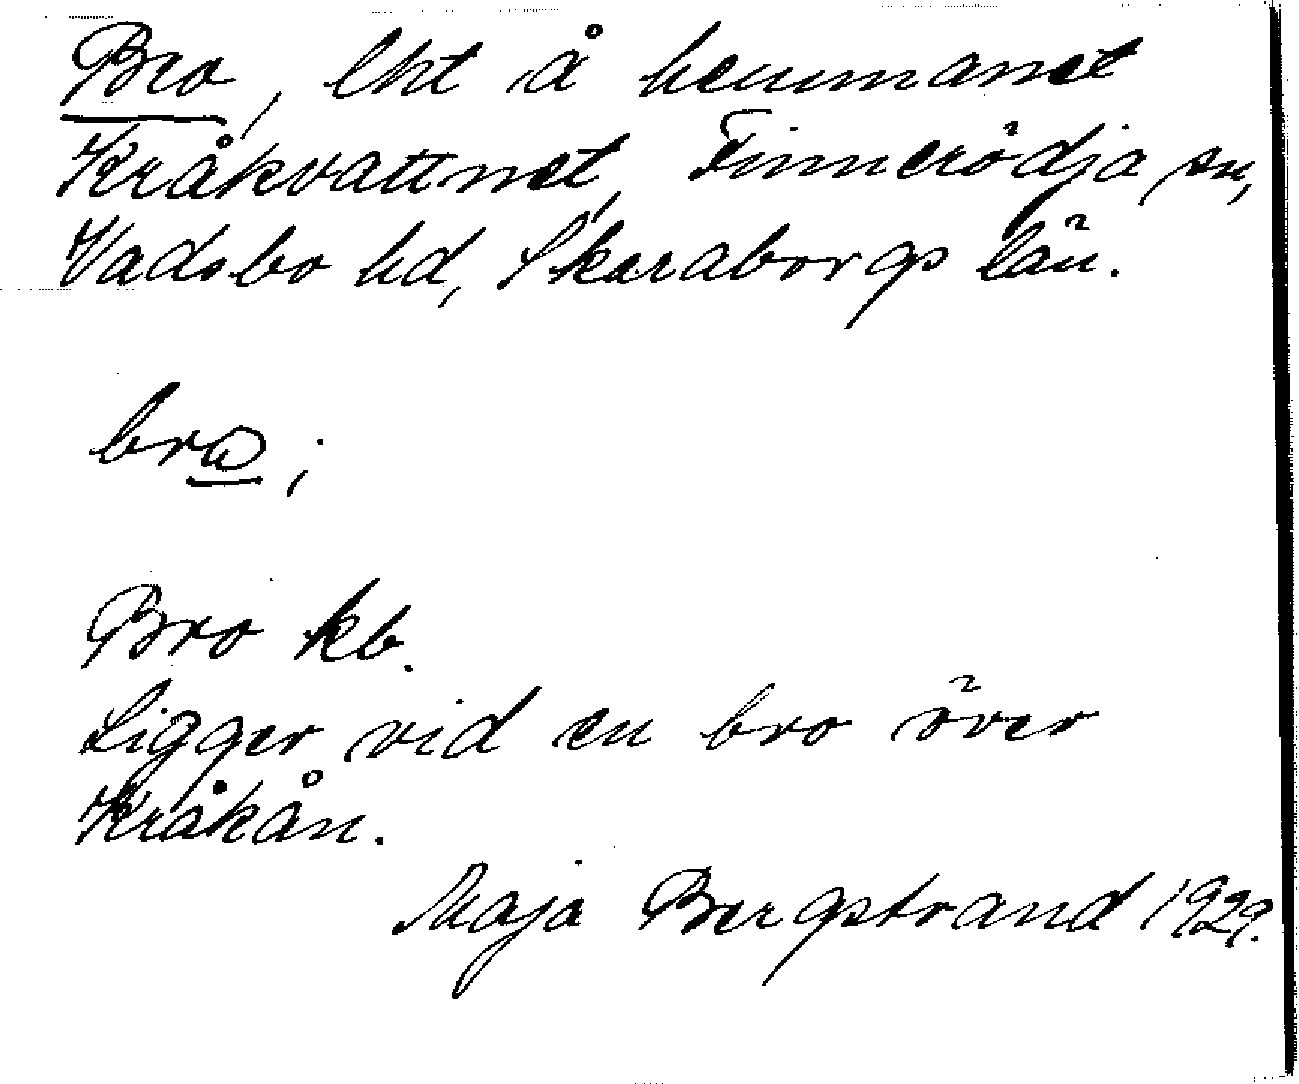 Bro, lht å hemmanet
Kråkvattnet, Finnerödja sn,
Vadsbo hd, Skaraborgs län.
bro;
Bro kb.
Ligger vid en bro över
Kråkån.
Maja Bergstrand 1929.